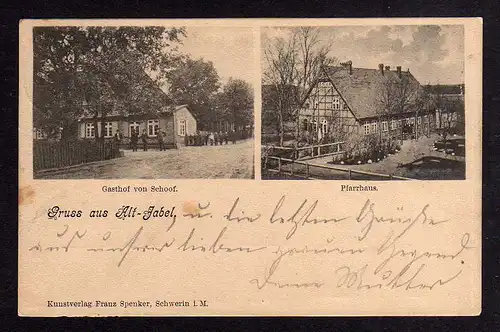 Gasthof von Schoof.
Pfarrhaus.
Gruss aus Alt-Jabel, u. die letzten Grüße
aus unserer lieben grauen Gegend
Deine Mutter
Kunstverlag Franz Spenker, Schwerin i. M.